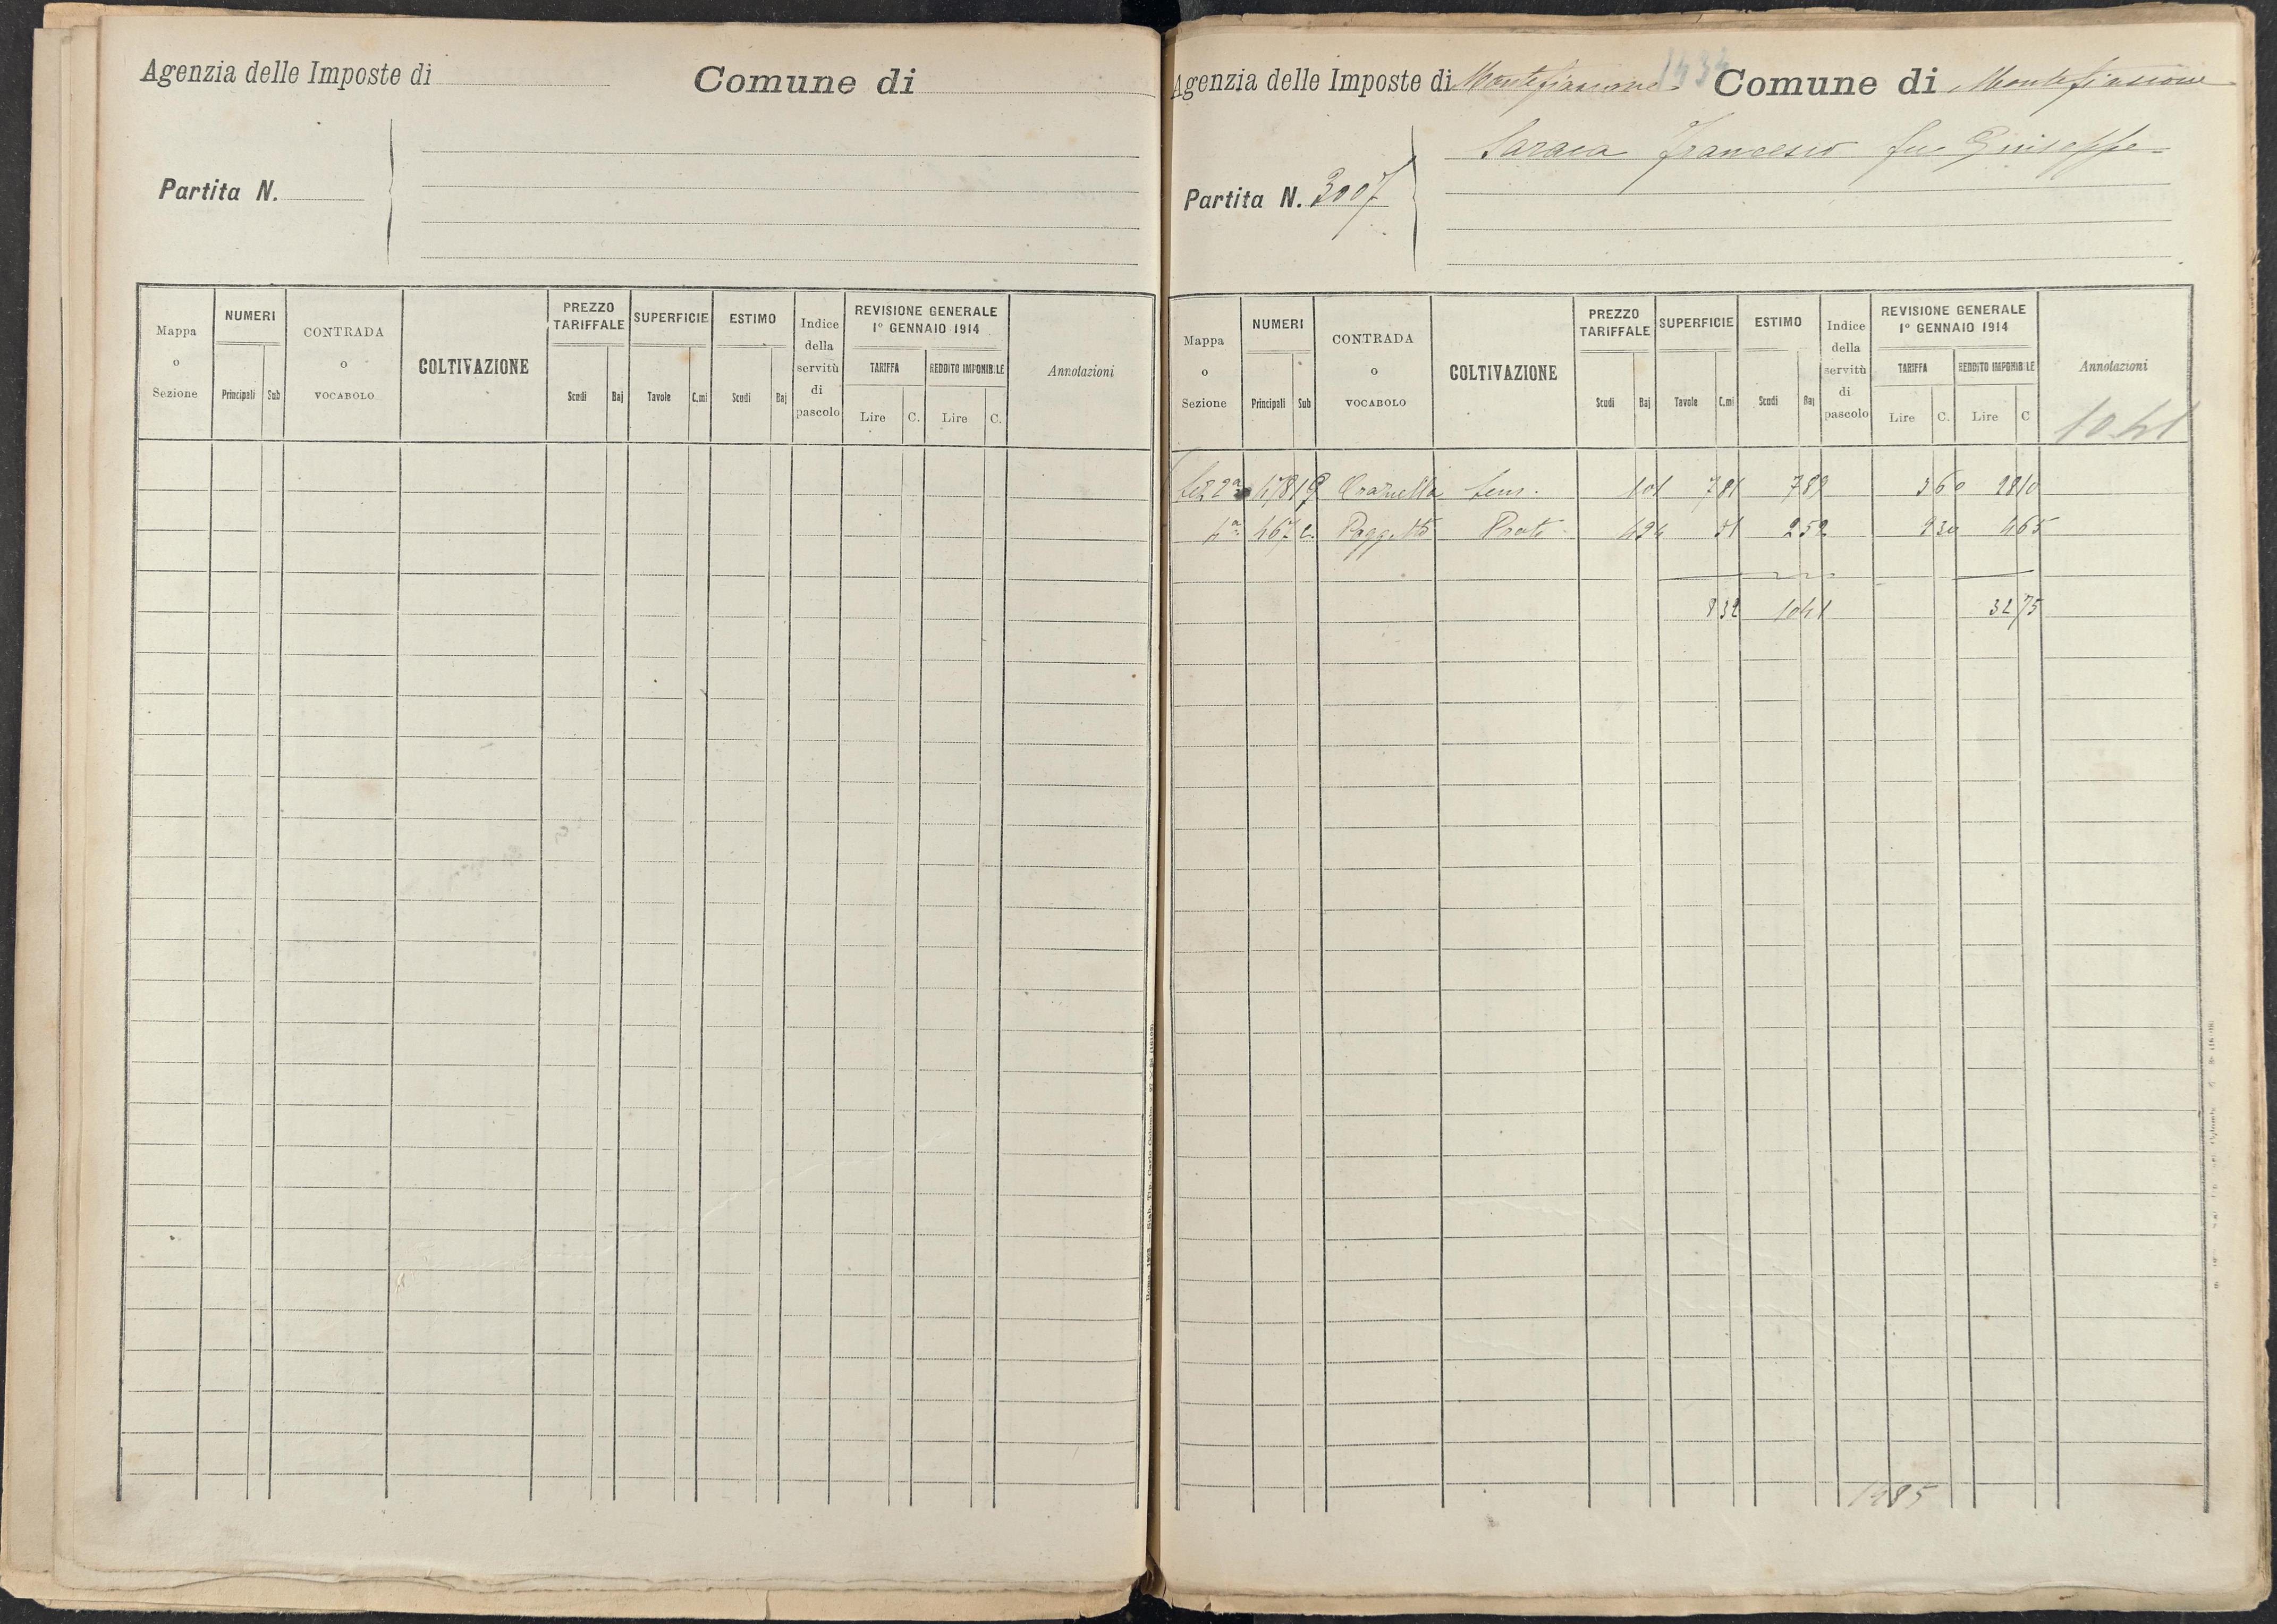 Agenzia delle Imposte di
Comune di
Partita N.
Mappa o Sezione
NUMERI
Principali Sub
CONTRADA o VOCABOLO
COLTIVAZIONE
PREZZO TARIFFALE
Scudi Baj
SUPERFICIE
Tavole C.mi
ESTIMO
Scudi Baj
Indice della servitù di pascolo
REVISIONE GENERALE
1º GENNAIO 1914
TARIFFA REDDITO IMPONIBILE
Lire C. Lire C.
Annotazioni
1434
Agenzia delle Imposte di Montefiascone Comune di Montefiascone
Saraca Francesco fu Giuseppe
Partita N. 3007
Mappa o Sezione
NUMERI
Principali Sub
CONTRADA o VOCABOLO
COLTIVAZIONE
PREZZO TARIFFALE
Scudi Baj
SUPERFICIE
Tavole C.mi
ESTIMO
Scudi Baj
Indice della servitù di pascolo
REVISIONE GENERALE
1º GENNAIO 1914
TARIFFA REDDITO IMPONIBILE
Lire C. Lire C
Annotazioni
10.41
Sez 2ª 478 19 Sem. 1 01 7 81 7 89 3 60 28 10
4ª 467 Poggetto Prato 4 94 51 2 52 9 30 4 65
8 32 10 41 32 75
1985